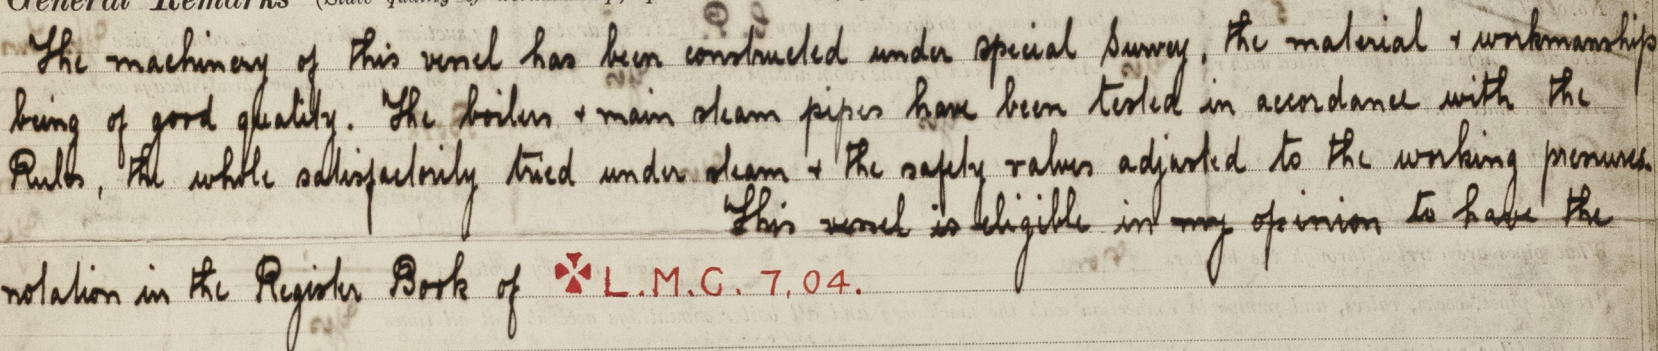 General Remarks
The machinery of this vessel has been constructed under special Survey, the material + workmanship
being of good quality. The boilers + main steam pipes have been tested in accordance with the
Rules, the whole satisfactorily tried under steam + the safety valves adjusted to the working pressures.
This vessel is eligible in my opinion to have the
notation in the Register Book of ✠ L.M.C. 7.04.